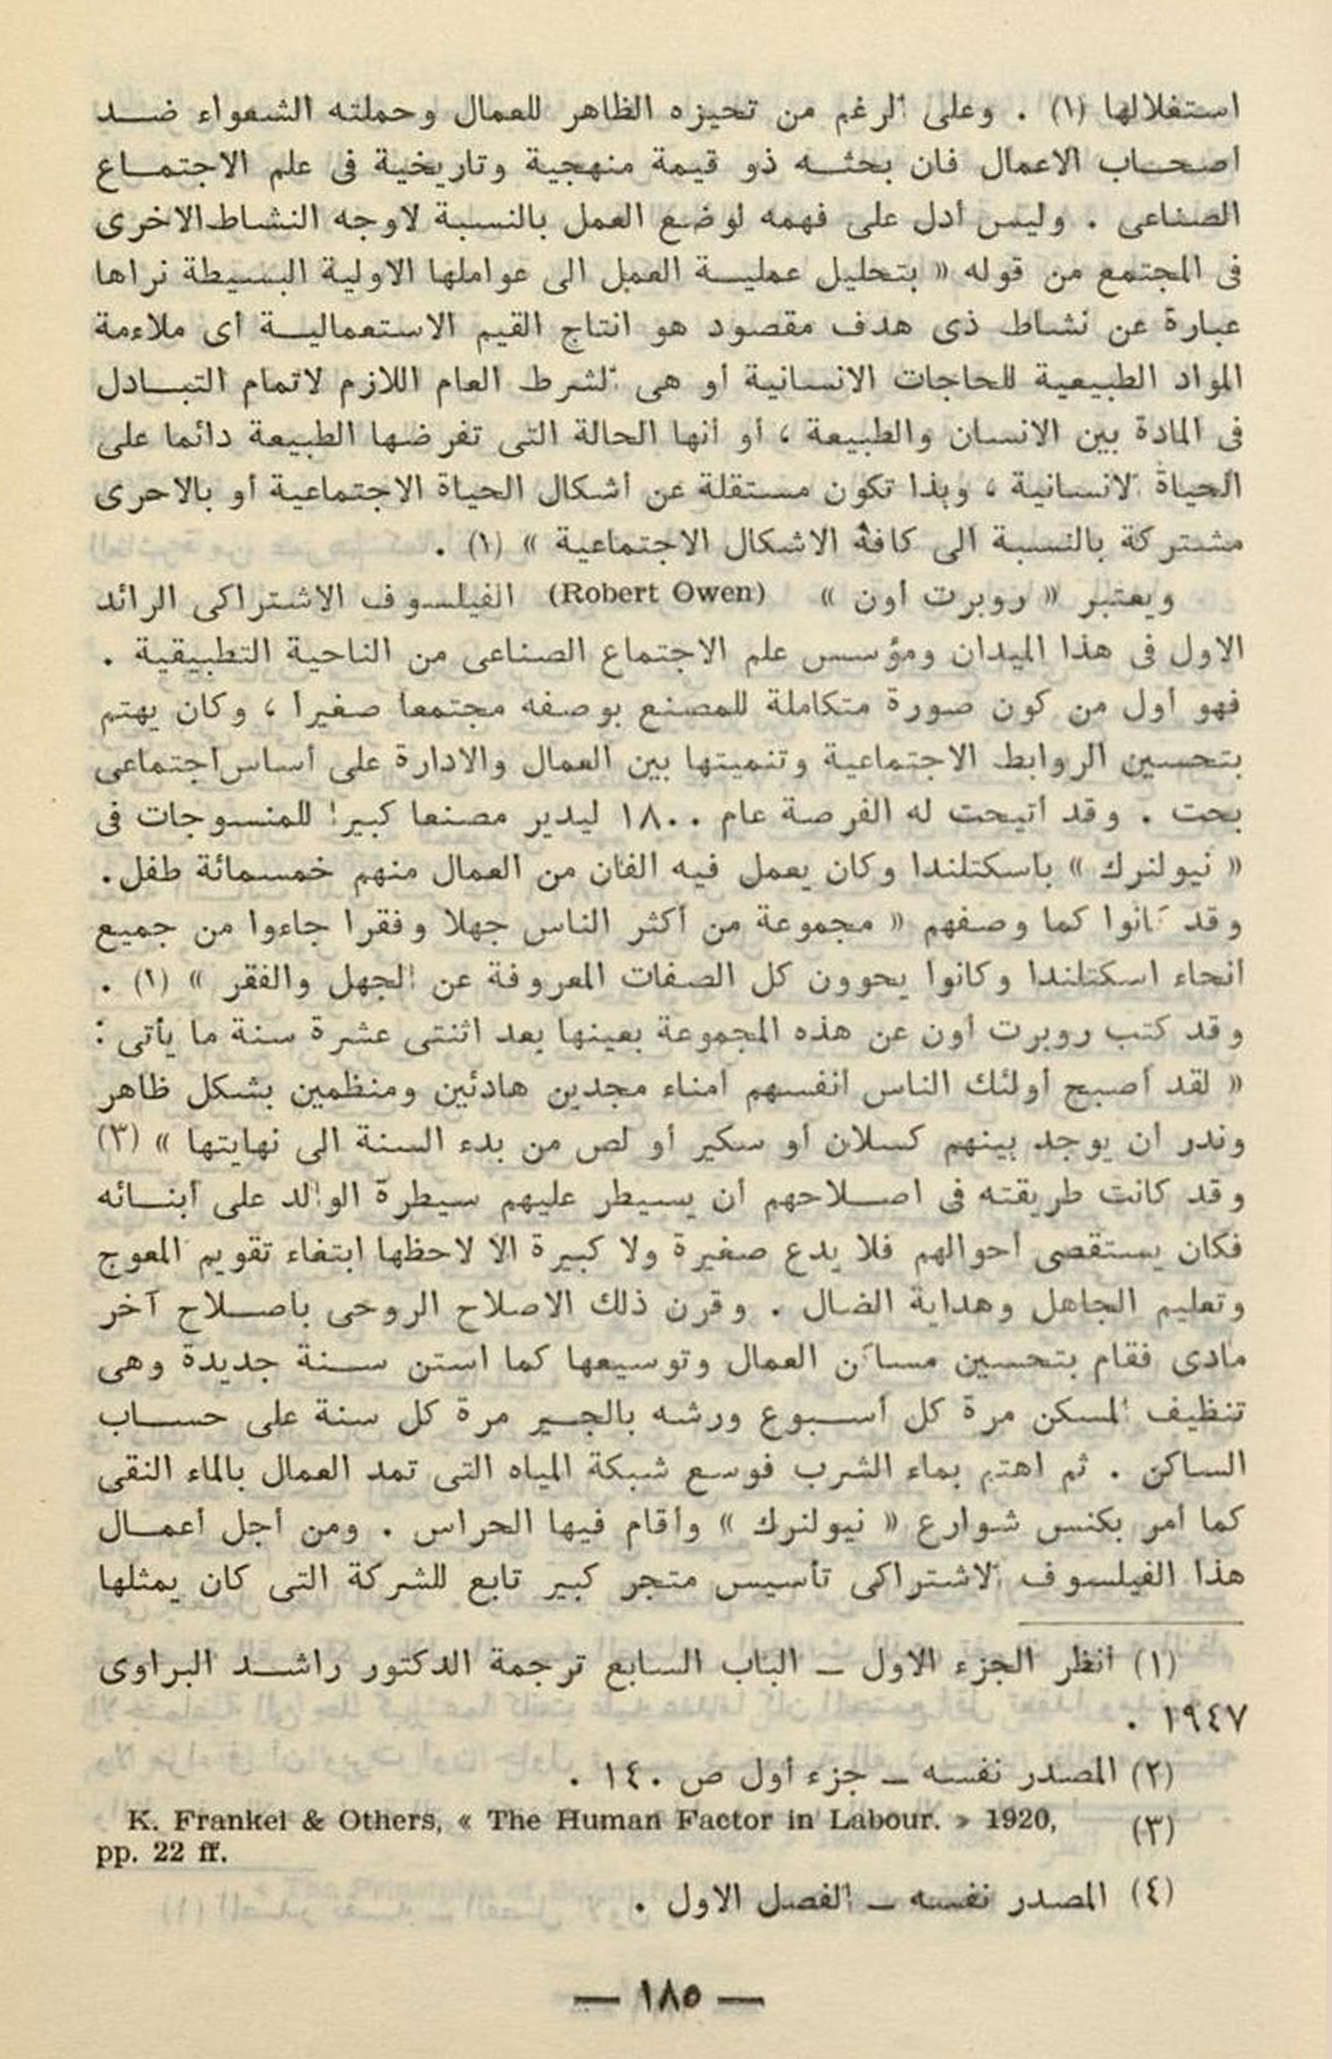 استغلالها (١) . وعلى الرغم من تحيزه الظاهر للعمال وحملته الشعواء ضد
اصحاب الاعمال فان بحثه ذو قيمة منهجية وتاريخية فى علم الاجتماع
الصناعى . وليس أدل على فهمه لوضع العمل بالنسبة لاوجه النشاط الاخرى
فى المجتمع من قوله « بتحليل عملية العمل الى عواملها الاولية البسيطة نراها
عبارة عن نشاط ذى هدف مقصود هو انتاج القيم الاستعمالية أى ملاءمة
المواد الطبيعية للحاجات الانسانية أو هى الشرط العام اللازم لاتمام التبادل
فى المادة بين الانسان والطبيعة ، أو أنها الحالة التى تفرضها الطبيعة دائما على
الحياة الانسانية ، وبذا تكون مستقلة عن أشكال الحياة الاجتماعية أو بالاحرى
مشتركة بالنسبة الى كافة الاشكال الاجتماعية » (١) .
ويعتبر « روبرت أون » (Robert Owen) الفيلسوف الاشتراكى الرائد
الاول فى هذا الميدان ومؤسس علم الاجتماع الصناعى من الناحية التطبيقية .
فهو أول من كون صورة متكاملة للمصنع بوصفه مجتمعا صغيرا ، وكان يهتم
بتحسين الروابط الاجتماعية وتنميتها بين العمال والادارة على أساس اجتماعى
بحت . وقد أتيحت له الفرصة عام ١٨٠٠ ليدير مصنعا كبيرا للمنسوجات فى
« نيولنرك » باسكتلندا وكان يعمل فيه الفان من العمال منهم خمسمائة طفل .
وقد كانوا كما وصفهم « مجموعة من أكثر الناس جهلا وفقرا جاءوا من جميع
انحاء اسكتلندا وكانوا يحوون كل الصفات المعروفة عن الجهل والفقر » (١) .
وقد كتب روبرت أون عن هذه المجموعة بعينها بعد اثنتى عشرة سنة ما يأتى :
« لقد أصبح أولئك الناس أنفسهم أمناء مجدين هادئين ومنظمين بشكل ظاهر
وندر أن يوجد بينهم كسلان أو سكير أو لص من بدء السنة الى نهايتها » (٣)
وقد كانت طريقته فى اصلاحهم أن يسيطر عليهم سيطرة الوالد على أبنائه
فكان يستقصى أحوالهم فلا يدع صغيرة ولا كبيرة الا لاحظها ابتغاء تقويم المعوج
وتعليم الجاهل وهداية الضال . وقرن ذلك الاصلاح الروحى باصلاح آخر
مادى فقام بتحسين مساكن العمال وتوسيعها كما استن سنة جديدة وهى
تنظيف المسكن مرة كل أسبوع ورشه بالجير مرة كل سنة على حساب
الساكن . ثم اهتم بماء الشرب فوسع شبكة المياه التى تمد العمال بالماء النقى
كما أمر بكنس شوارع « نيولنرك » وأقام فيها الحراس . ومن أجل أعمال
هذا الفيلسوف الاشتراكى تأسيس متجر كبير تابع للشركة التى كان يمثلها
(١) أنظر الجزء الاول ــ الباب السابع ترجمة الدكتور راشد البراوى
١٩٤٧ .
(٢) المصدر نفسه ــ جزء أول ص ١٤٠ .
(٣) K. Frankel & Others, « The Human Factor in Labour. » 1920,
pp. 22 ff.
(٤) المصدر نفسه ــ الفصل الاول .
— ١٨٥ —